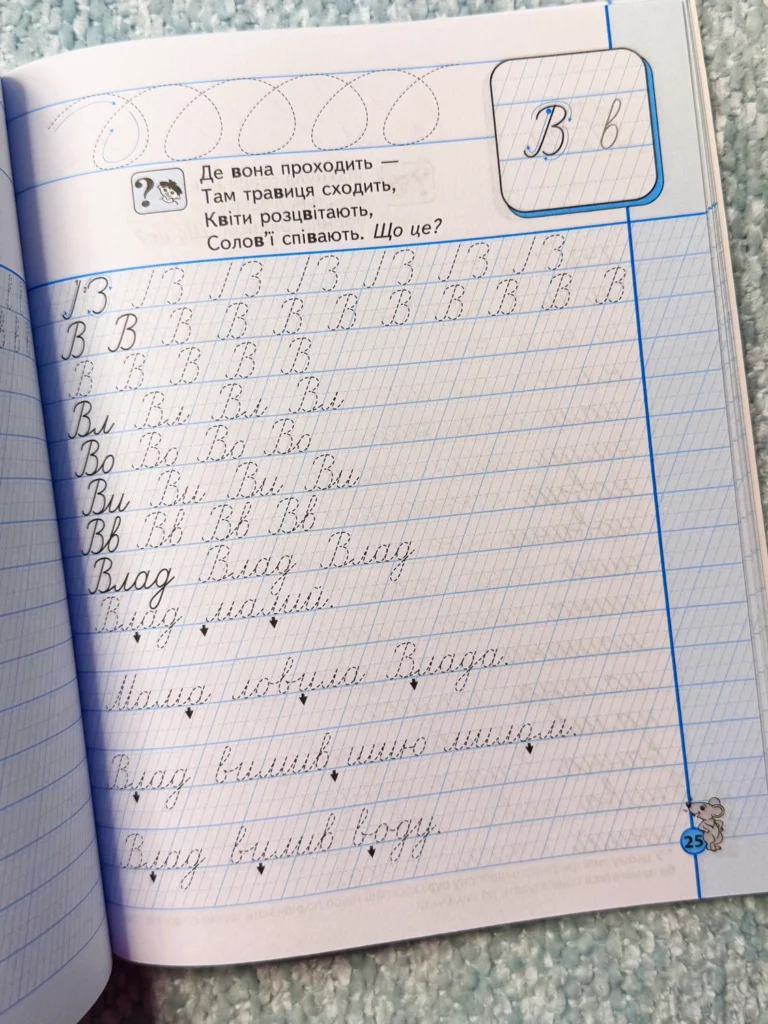 В в
?
Де вона проходить —
Там травиця сходить,
Квіти розцвітають,
Солов'ї співають. Що це?
В В В В В В В В В В В
В В В В В
Вл Вл Вл Вл
Во Во Во Во
Ви Ви Ви Ви
Вв Вв Вв Вв
Влад Влад Влад
Влад малий.
Мама ловила Влада.
Влад вимив шию милом.
Влад вилив воду.
25